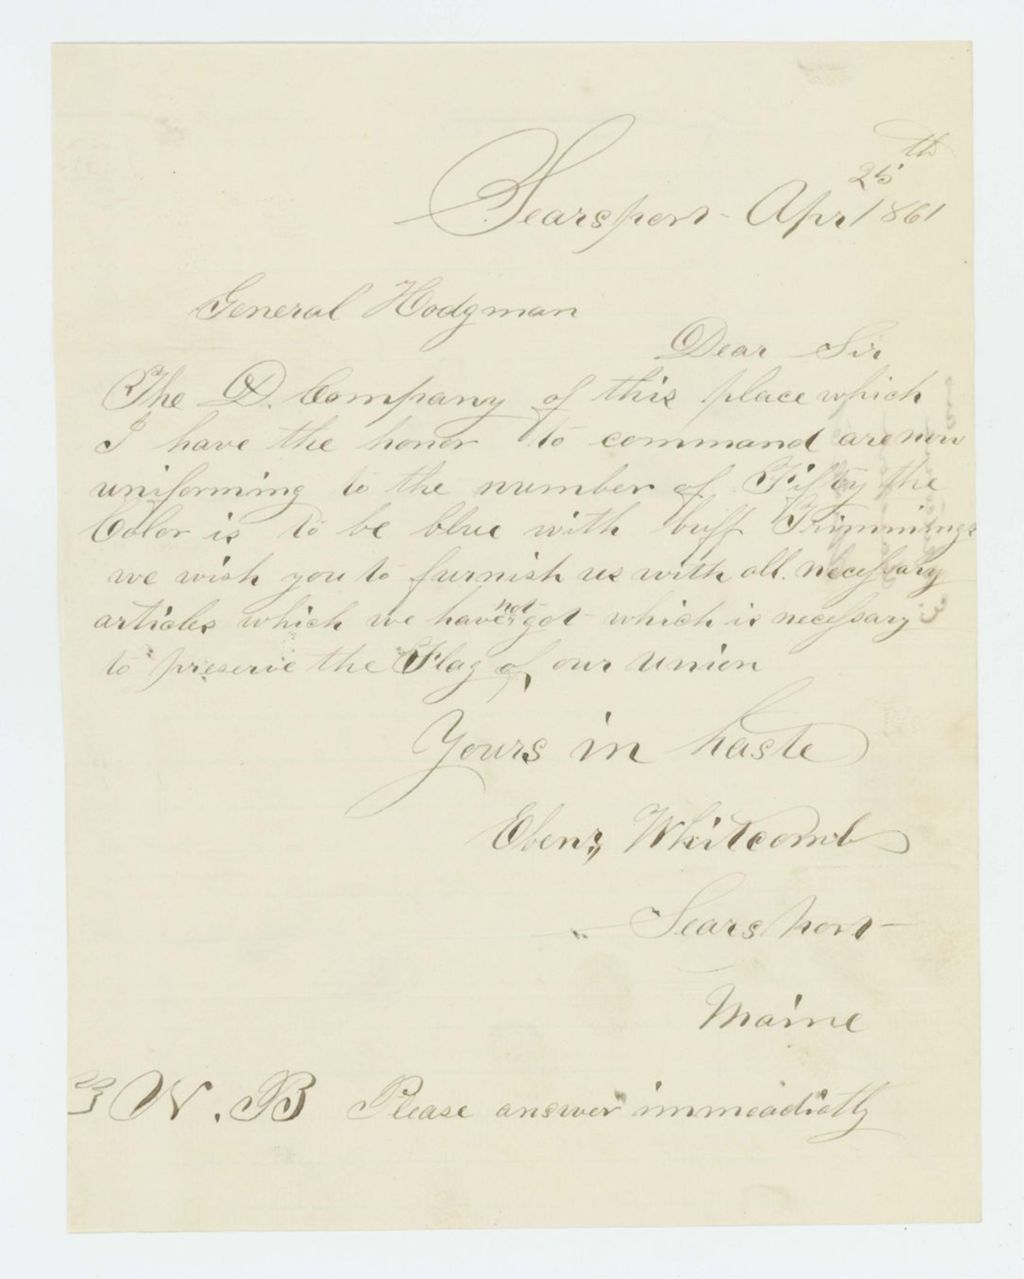 Searsport - Apr 25th 1861
General Hodgman
Dear Sir
The D. Company of this place which
I have the honor to command are now
uniforming to the number of Fifty the
Color is to be blue with buff Trimmings
we wish you to furnish us with all necessary
articles which we have not got which is necessary
to preserve the Flag of our Union
Yours in haste
Eben Whitcomb
Searsport
Maine
N. B Please answer immeadiatly